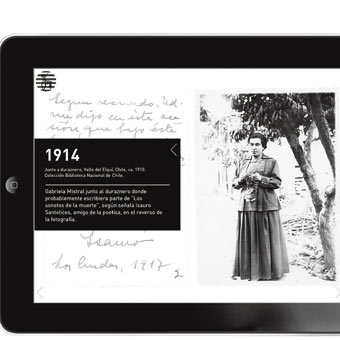 Segun recuerdo, Ud.
me dijo en este
que bajo este
1914
Junto a duraznero, Valle del Elqui, Chile, ca. 1910.
Colección Biblioteca Nacional de Chile.
Gabriela Mistral junto al duraznero donde
probablemente escribiera parte de "Los
sonetos de la muerte", según señala Isauro
Santelices, amigo de la poetisa, en el reverso de
la fotografía.
Isauro
Los Andes, 1917
2